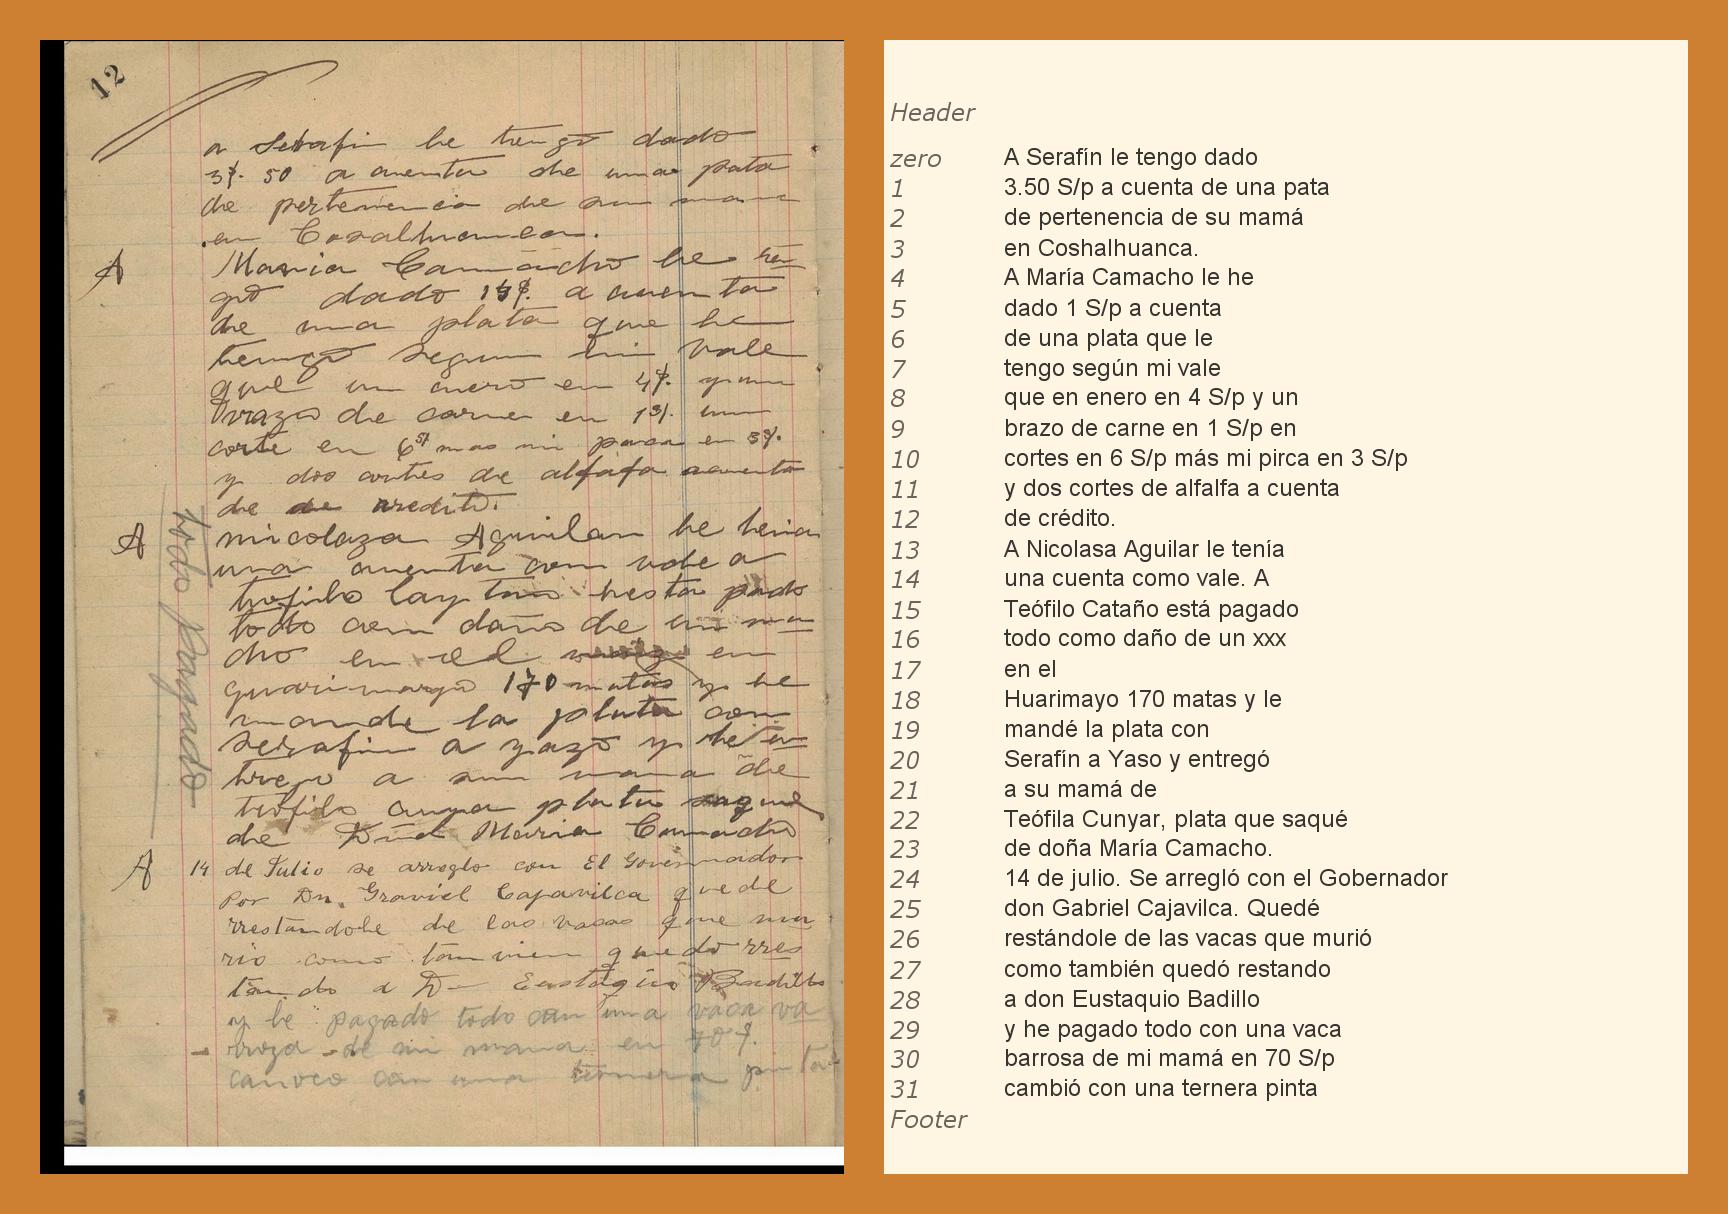 12
a Serafin le tengo dado
3$. 50 a cuenta de una pata
de pertenencia de su mama
en
A Maria Camacho le ten
go dado a cuenta
de una plata que le
tengo segun mi vale
que un cuero en 4$. y un
brazo de carne en 1$. un
corte en 6 mas mi en 3$.
y dos cortes de alfafa acuenta
de de credito.
A nicolaza Aguilar le tenia
una cuenta con vale a
teofilo resta
todo con daño de un ma
cho en el en
170 matas y le
mande la plata con
serafin a yazo y le en
trego a su mama de
teofilo cuya plata saque
de Dña Maria Camacho
A 14 de Julio se arreglo con El Governador
Por Dn. Graviel Capavilca quede
rrestandole de las vacas que mu
rio como tanvien quedo rres
tando a Dn Eustaqio Badillo
y le pagado todo con una vaca va
rroza de mi mama en 70$.
con una ternera pinta
todo pagado
Header
zero A Serafín le tengo dado
1 3.50 S/p a cuenta de una pata
2 de pertenencia de su mamá
3 en Coshalhuanca.
4 A María Camacho le he
5 dado 1 S/p a cuenta
6 de una plata que le
7 tengo según mi vale
8 que en enero en 4 S/p y un
9 brazo de carne en 1 S/p en
10 cortes en 6 S/p más mi pirca en 3 S/p
11 y dos cortes de alfalfa a cuenta
12 de crédito.
13 A Nicolasa Aguilar le tenía
14 una cuenta como vale. A
15 Teófilo Cataño está pagado
16 todo como daño de un xxx
17 en el
18 Huarimayo 170 matas y le
19 mandé la plata con
20 Serafín a Yaso y entregó
21 a su mamá de
22 Teófila Cunyar, plata que saqué
23 de doña María Camacho.
24 14 de julio. Se arregló con el Gobernador
25 don Gabriel Cajavilca. Quedé
26 restándole de las vacas que murió
27 como también quedó restando
28 a don Eustaquio Badillo
29 y he pagado todo con una vaca
30 barrosa de mi mamá en 70 S/p
31 cambió con una ternera pinta
Footer